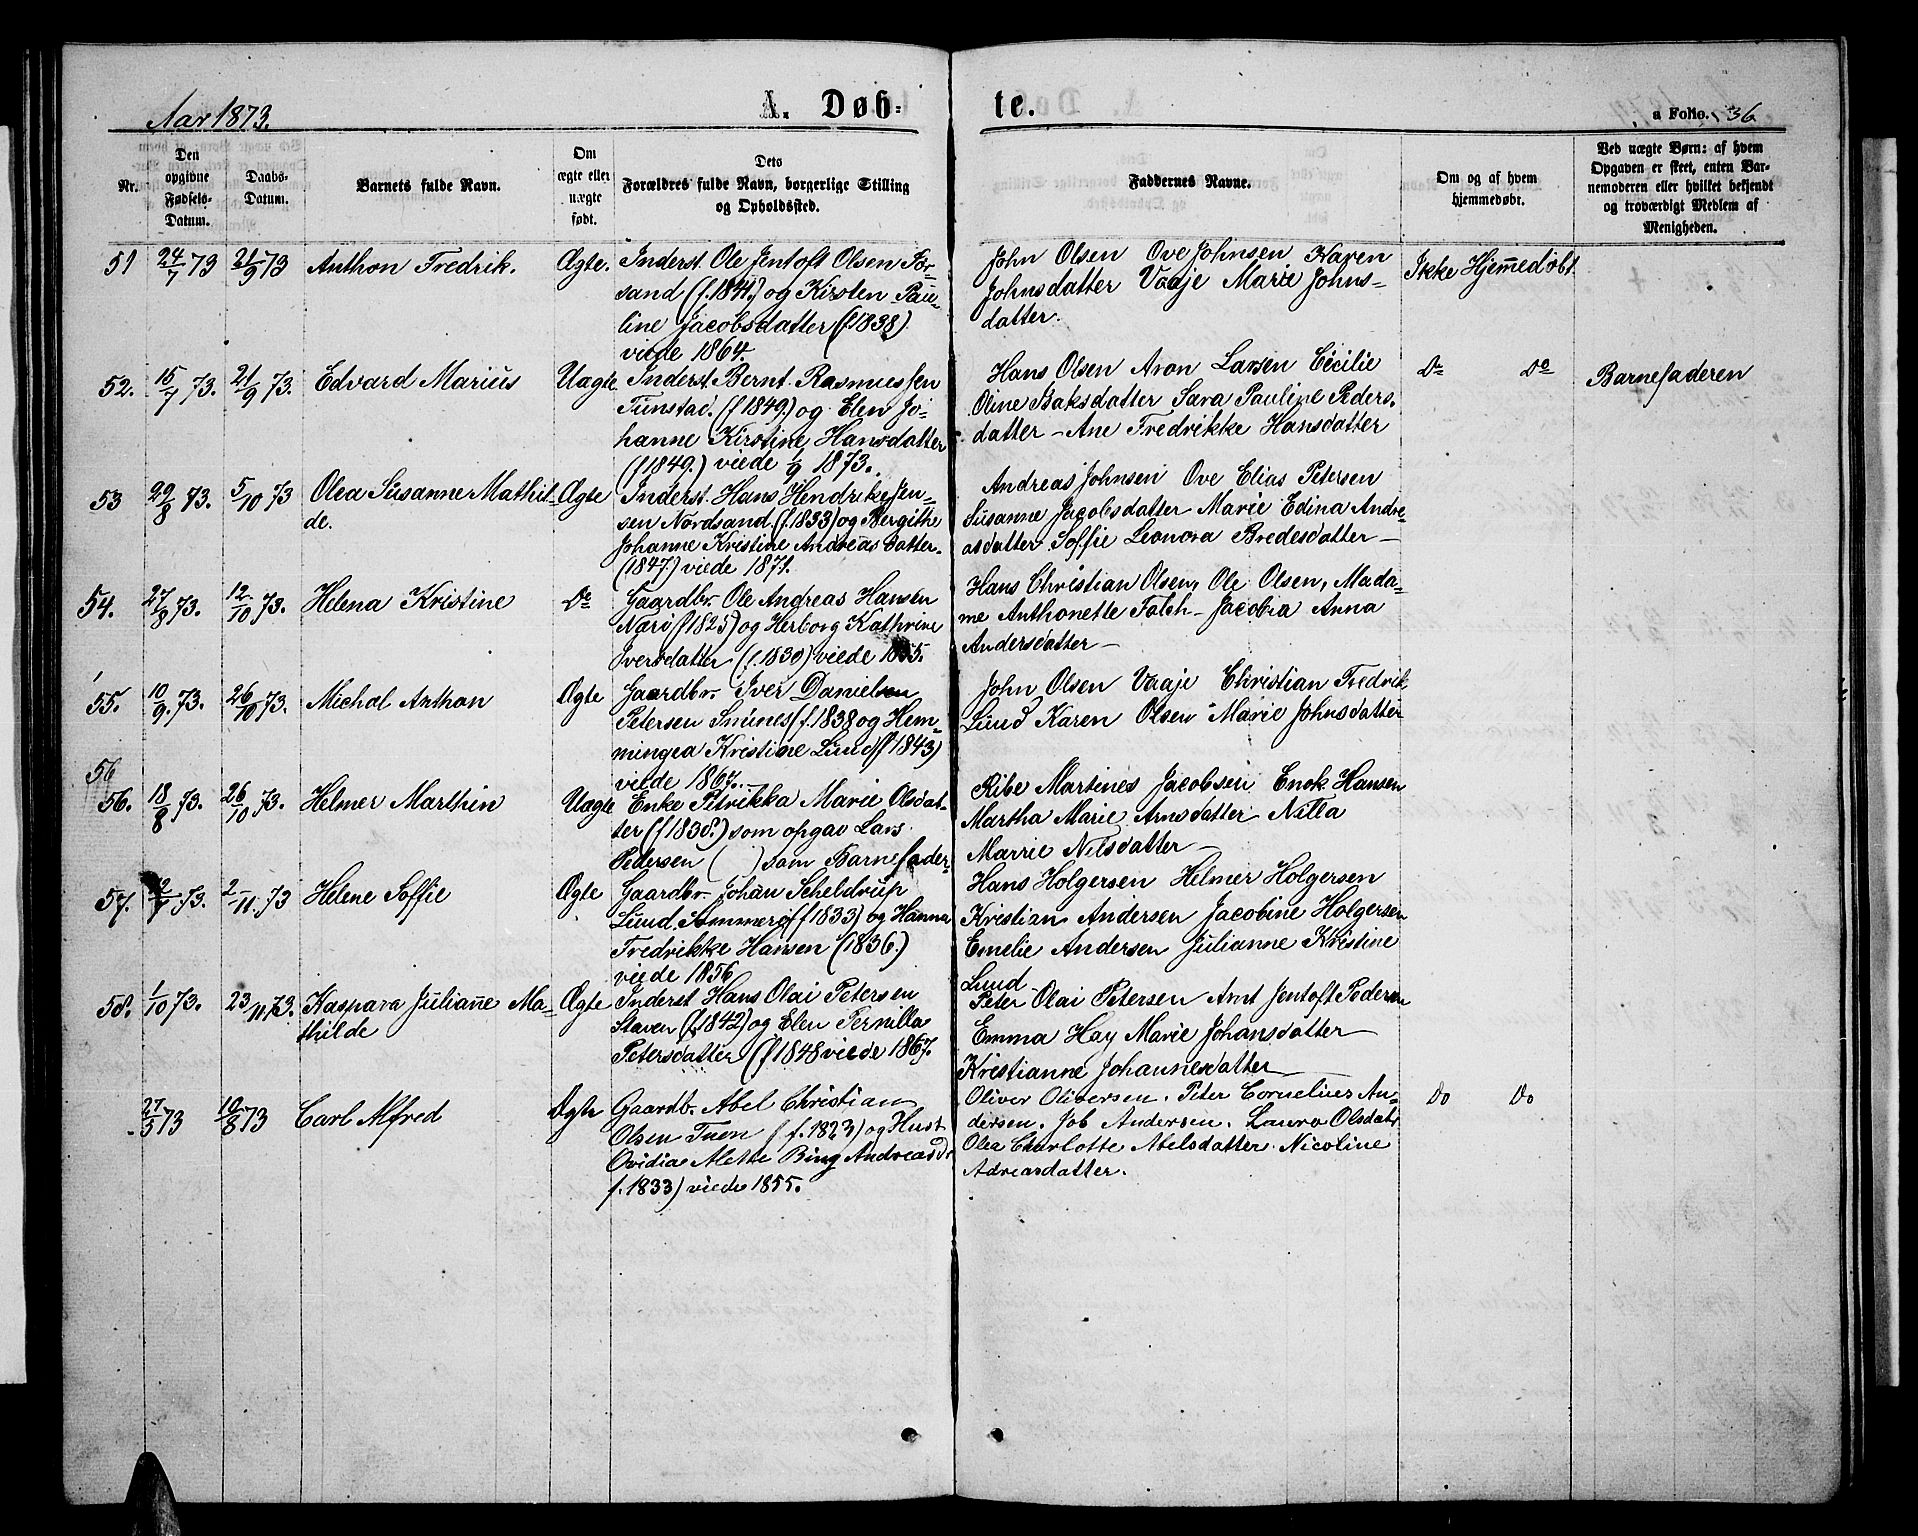 Aar 1873.
A. Døb-
te.
a Folio. 36
Nr.
Den opgivne Fødsels-Datum.
Daabs-Datum.
Barnets fulde Navn.
Om ægte eller uægte født.
Dets Forældres fulde Navn, borgerlige Stilling og Opholdssted.
Faddernes Navne.
Om og af hvem hjemmedøbt.
Ved uægte Børn: af hvem Opgaven er skeet, enten Barnemoderen eller hvilket bekjendt og troværdigt Medlem af Menigheden.
51 24/7 73 21/9 73 Anthon Fredrik. Ægte.
Inderst. Ole Jentoft Olsen For-
sand (f. 1841.) og Kirsten Pau-
line Jacobsdatter (f 1838)
viede 1864.
John Olsen Ove Johnsen Karen
Johnsdatter Vaaje Marie Johns-
datter.
Ikke Hjemmedøbt
52. 15/7 73. 21/9 73. Edvard Marius Uægte
Inderst. Bernt Rasmussen
Tunstad. (f 1849.) og Elen Jo-
hanne Kirstine Hansdatter
(f 1849.) viede 1/9 1873.
Hans Olsen Aron Larsen Cecilie
Oline Isaksdatter Sara Pauline Peders-
datter - Ane Fredrikke Hansdatter
Do Do
Barnefaderen
53 29/8 73. 5/10 73 Olea Susanne Mathil-
de. Ægte
Inderst. Hans Hendrik Jen-
sen Nordsand. (f. 1833) og Bergithe
Johanne Kristine Andreasdatter.
(1847.) viede 1871.
Andreas Johnsen Ove Elias Petersen
Susanne Jacobsdatter Marie Edina Andre-
asdatter Soffie Leonora Bredesdatter -
54. 27/8 73. 12/10 73. Helena Kristine Do
Gaardbr. Ole Andreas Hansen
Narø (f 1825) og Herborg Kathrine
Iversdatter (f. 1830) viede 1855.
Hans Christian Olsen, Ole Olsen, Mada-
me Anthonette Falch - Jacobea Anna
Andersdatter -
55. 10/9. 73. 26/10 73. Michal Anthon Ægte
Gaardbr. Iver Danielsen
Petersen Snunes (f. 1838 og Hem-
mingea Kristine Lund (f 1843)
viede 1867.
John Olsen Vaaje Christian Fredrik
Lund Karen Olsen Marie Johnsdatter
56
56. 18/8 73. 26/10 73. Helmer Marthin Uægte
Enke Petrikka Marie Olsdat-
ter (f 1838.) som opgav Lars
Pedersen ( ) som Barnefader.
Ribe Martines Jacobsen Enok Hansen
Martha Marie Arnsdatter Nilla
Marrie Nilsdatter -
57. 73. 2/11. 73 Helene Soffie Ægte
Gaardbr. Johan Scheldrup
Lund. Sommerø (f 1833) og Hanna
Fredrikke Hansen (1836.)
viede 1856
Hans Holgersen Helmer Holgersen
Kristian Andersen Jacobine Holgersen
Emelie Andersen Julianne Kristine
Lund -
58. 1/10 73. 23/11 73. Kaspara Julianne Ma-
thilde Ægte
Inderst Hans Olai Petersen
Staven (f. 1842) og Elen Pernilla
Petersdatter (f 1848 viede 1867.
Peter Olai Petersen Arnt Jentoft Pedersen
Emma Hay Marie Johansdatter -
Kristianne Johannesdatter -
27/5 73 10/8 73 Carl Alfred Ægte
Gaardb. Abel Christian
Olsen Tuen ( f. 1823) og Hust
Ovidia Mette Bing Andreasd
f. 1833) viede 1855.
Oliver Olidersen. Peter Cornelius An-
dersen. Job Andersen. Laura Olsdatr
Olea Charlotte Abelsdatter. Nicoline
Adreasdatter.
Do Do